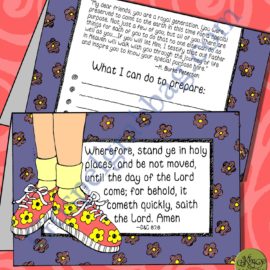 "My dear friends, you are a royal generation. You were
preserved to come to the earth in this time for a special
purpose. Not just a few of you, but all of you. There are
things for each of you to do that no one else can do as
well as you. If you will let Him, I testify that our Father
in Heaven will walk with you through the journey of life
and inspire you to know your special purpose here."
What I can do to prepare:
Wherefore, stand ye in holy
places, and be not moved,
until the day of the Lord
come; for behold, it
cometh quickly, saith
the Lord. Amen
~D&C 87:8